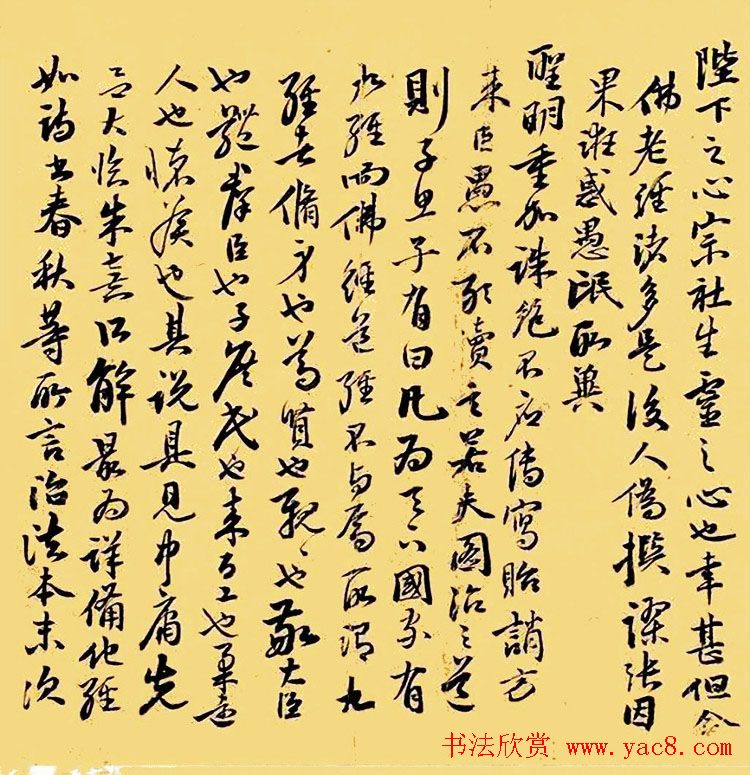 陛下之心宗社生靈之心也幸甚但念
佛老經諸多是後人偽撰謬張因
果誑惑愚氓所冀
聖明重加誅絕不应傳寫貽誚方
來臣愚不能賣言若夫圖治之道
則子思子有曰凡為天下國家有
九經而佛經道經不與焉所謂九
經者脩身也尊賢也親〻也敬大臣
也體群臣也子庶民也來百工也柔遠
人也懷侯也其說具見中庸先
大朱熹所解最為詳備他經
如詩書春秋等所言治法本末次
书法欣赏 www.yac8.com